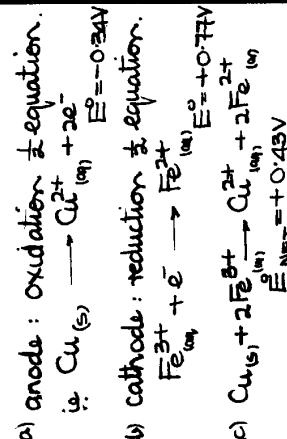 a) anode : oxidation ½ equation.
ie Cu(s) → Cu²⁺(aq) + 2e⁻
E° = -0.34V
b) cathode : reduction ½ equation.
Fe³⁺(aq) + e⁻ → Fe²⁺(aq)
E° = +0.77V
c) Cu(s) + 2Fe³⁺(aq) → Cu²⁺(aq) + 2Fe²⁺(aq)
E° = +0.43V